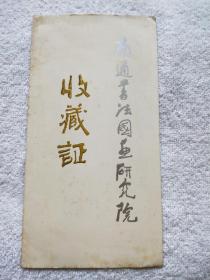 南通书法國画研究院
收藏証